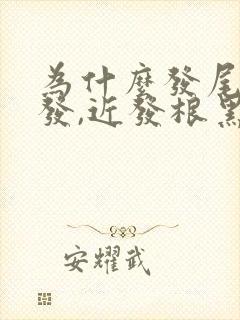 為什麼發尾
發,近發根黑
安耀武